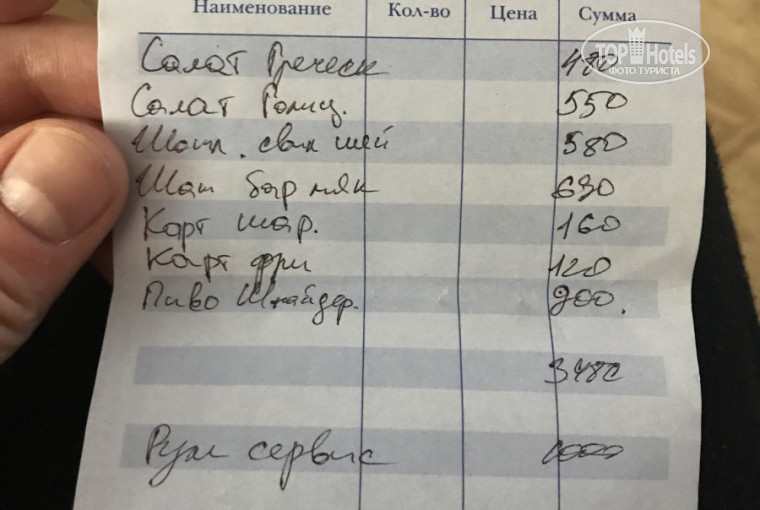 Наименование Кол-во Цена Сумма
TOP Hotels
ФОТО ТУРИСТА
Салат Греческ 480
Салат Голиц. 550
Шашл. свин шей 580
Шаш бар мяк 690
Карт шар. 160
Карт фри 120
Пиво Шнайдер. 900.
3480
Рум сервис